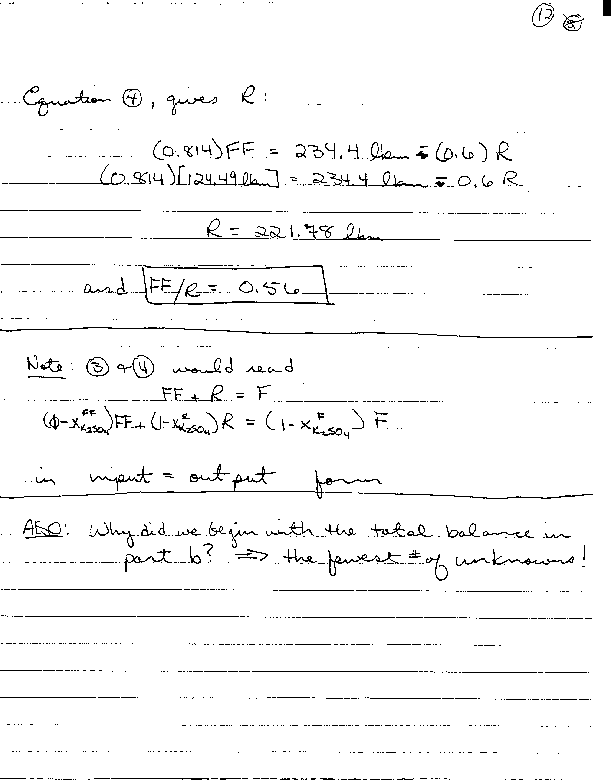 12
Equation ④, gives R:
(0.814)FF = 234.4 lbm - (0.6) R
(0.814)[124.49 lbm] = 234.4 lbm - 0.6 R
R = 221.78 lbm
and FF/R = 0.56
Note: ③ + ④ would read
FF + R = F
(1-x^FF_K2SO4)FF + (1-x^R_K2SO4)R = (1-x^F_K2SO4) F
in input = output form
ALSO: Why did we begin with the total balance in
part b? ⇒ the fewest # of unknowns!